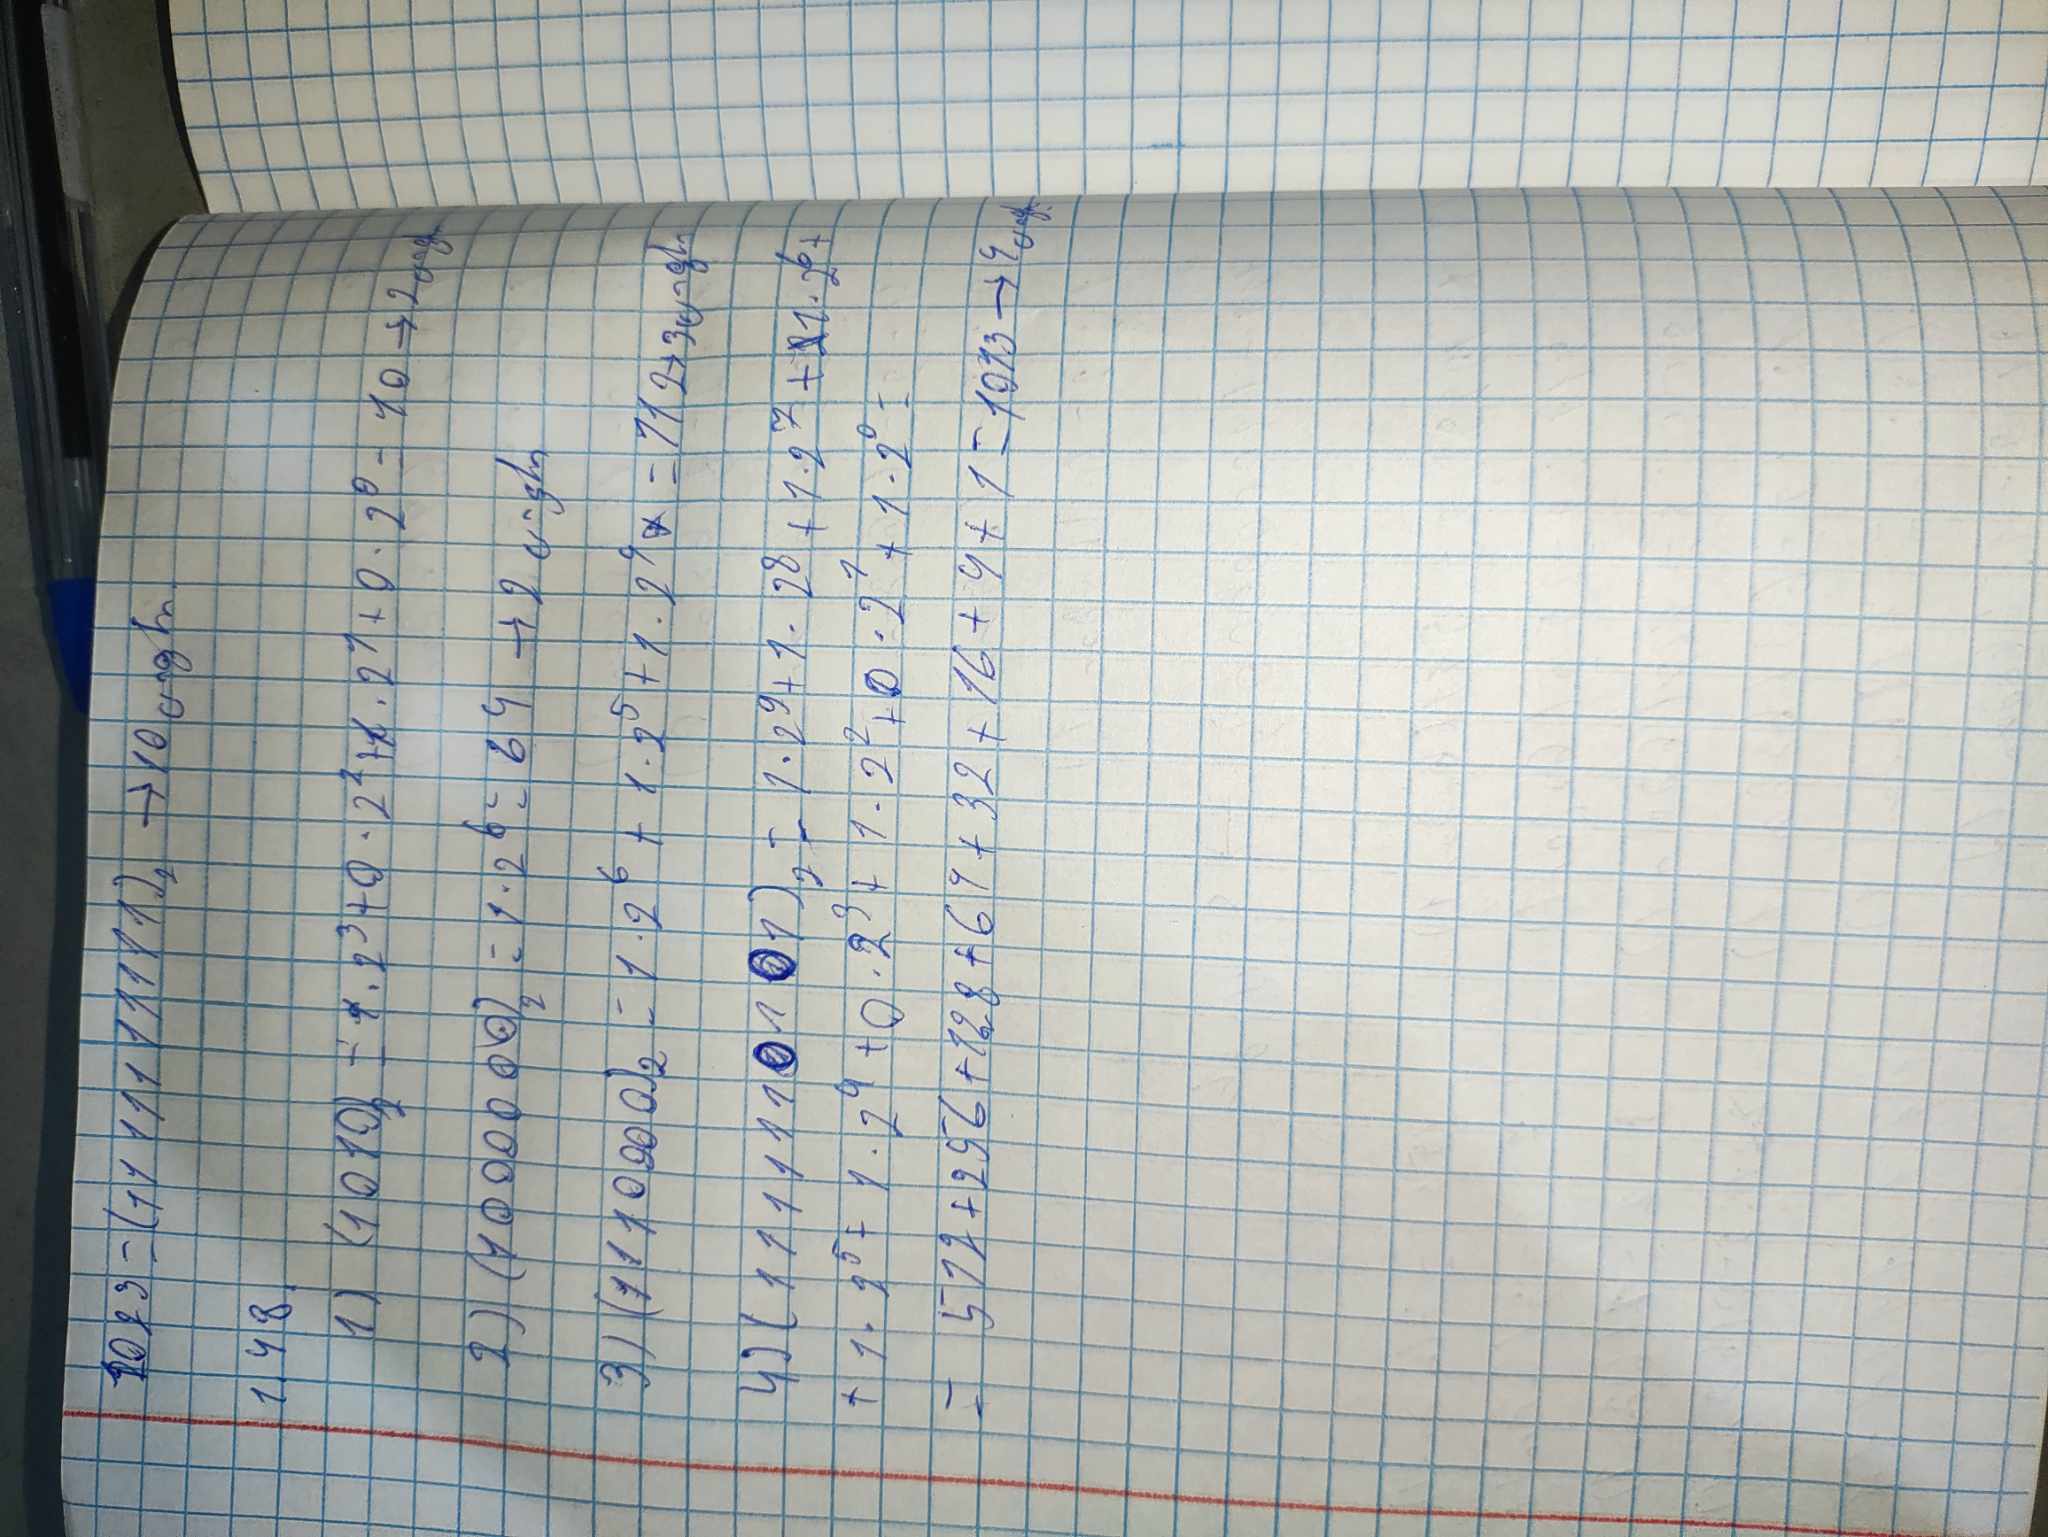 1023 = (1111111111)₂ → 10
1.48.
1) (1010)₂ = 1·2³+0·2²+1·2¹+0·2⁰ = 10 → 2
2) (1000000)₂ = 1·2⁶ = 64 → 2
3) (1110000)₂ = 1·2⁶ + 1·2⁵ + 1·2⁴ = 112 → 3
4) (1111110101)₂ = 1·2⁹+1·2⁸+1·2⁷+1·2⁶+
+1·2⁵+1·2⁴+0·2³+1·2²+0·2¹+1·2⁰ =
= 512+256+128+64+32+16+4+1 = 1013 → 4